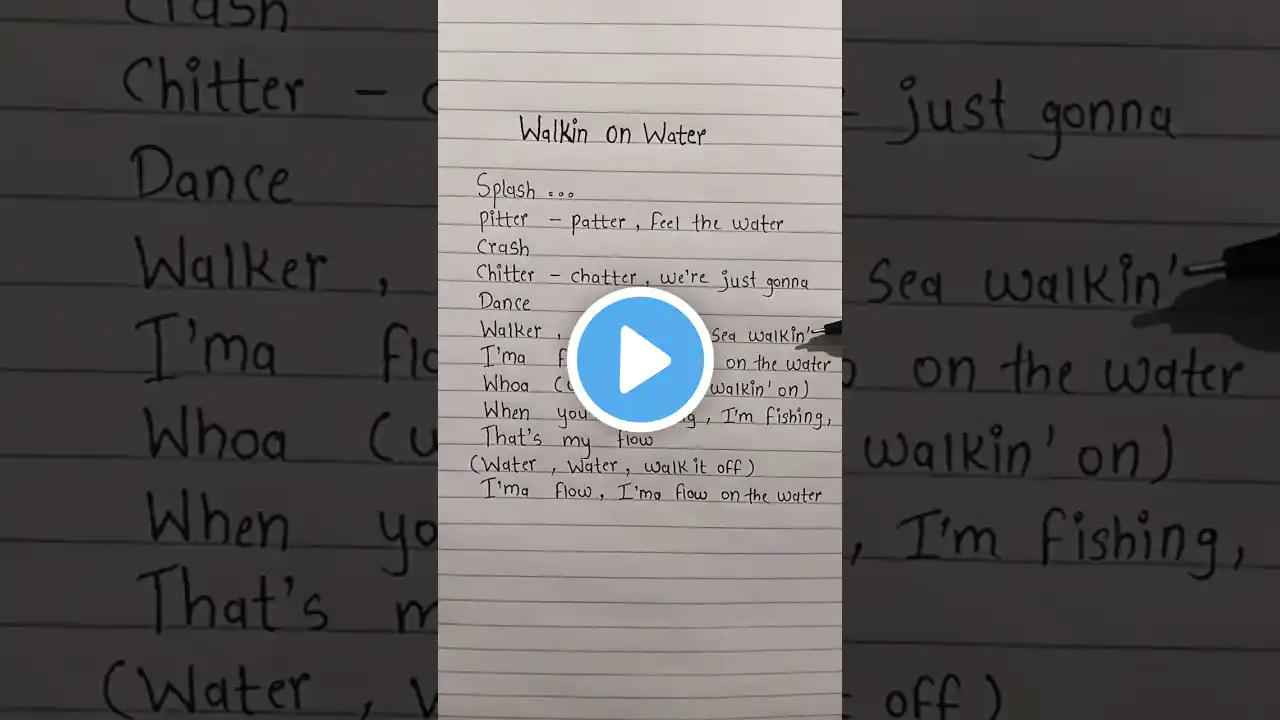 Walkin on Water
Splash ...
pitter - patter, feel the water
Crash
Chitter - chatter, we're just gonna
Dance
Walker, Sea walkin'
I'ma on the water
Whoa walkin' on)
When you , I'm fishing,
That's my flow
(Water, Water, walk it off)
I'ma flow, I'ma flow on the water